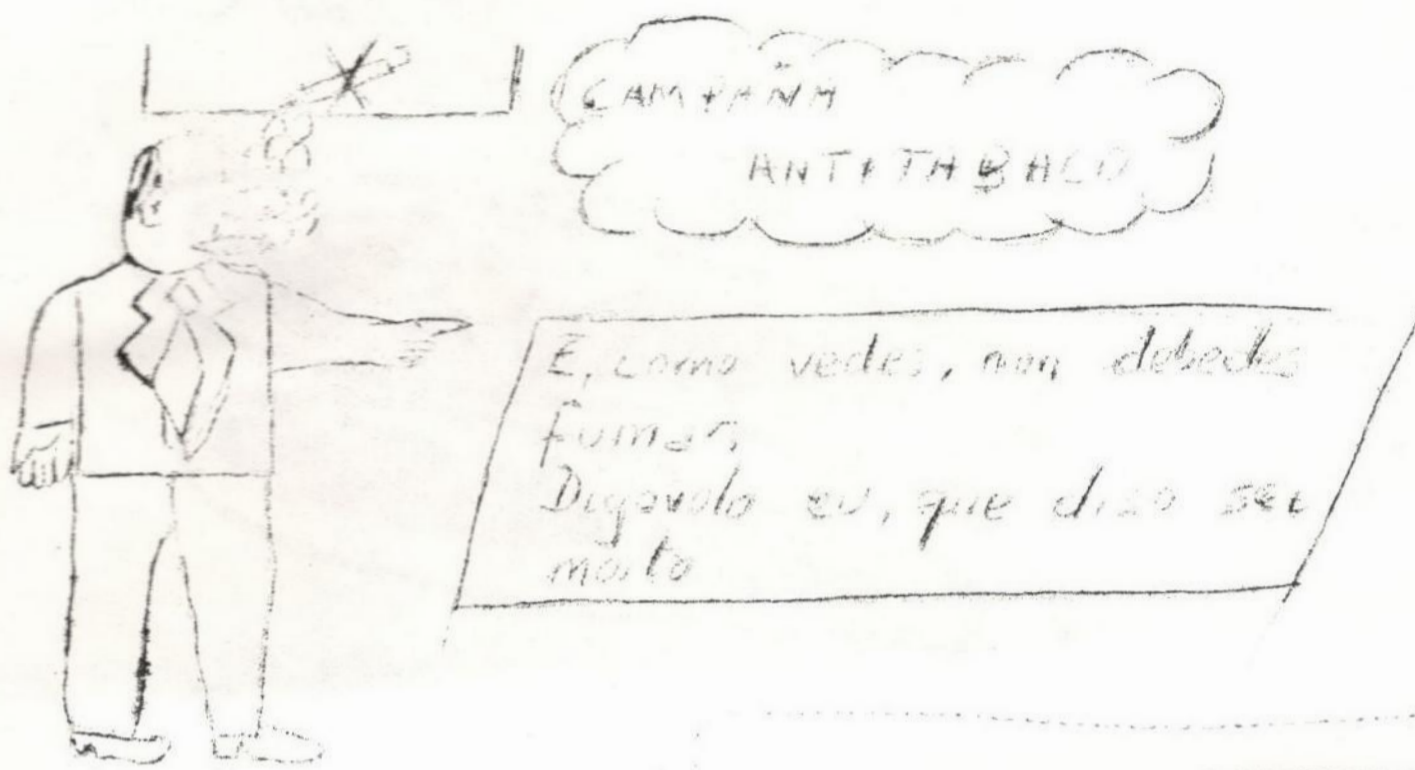 CAMPAÑA
ANTITABACO
E, como vedes, non debedes
fumar,
Digovolo eu, que diso sei
moito